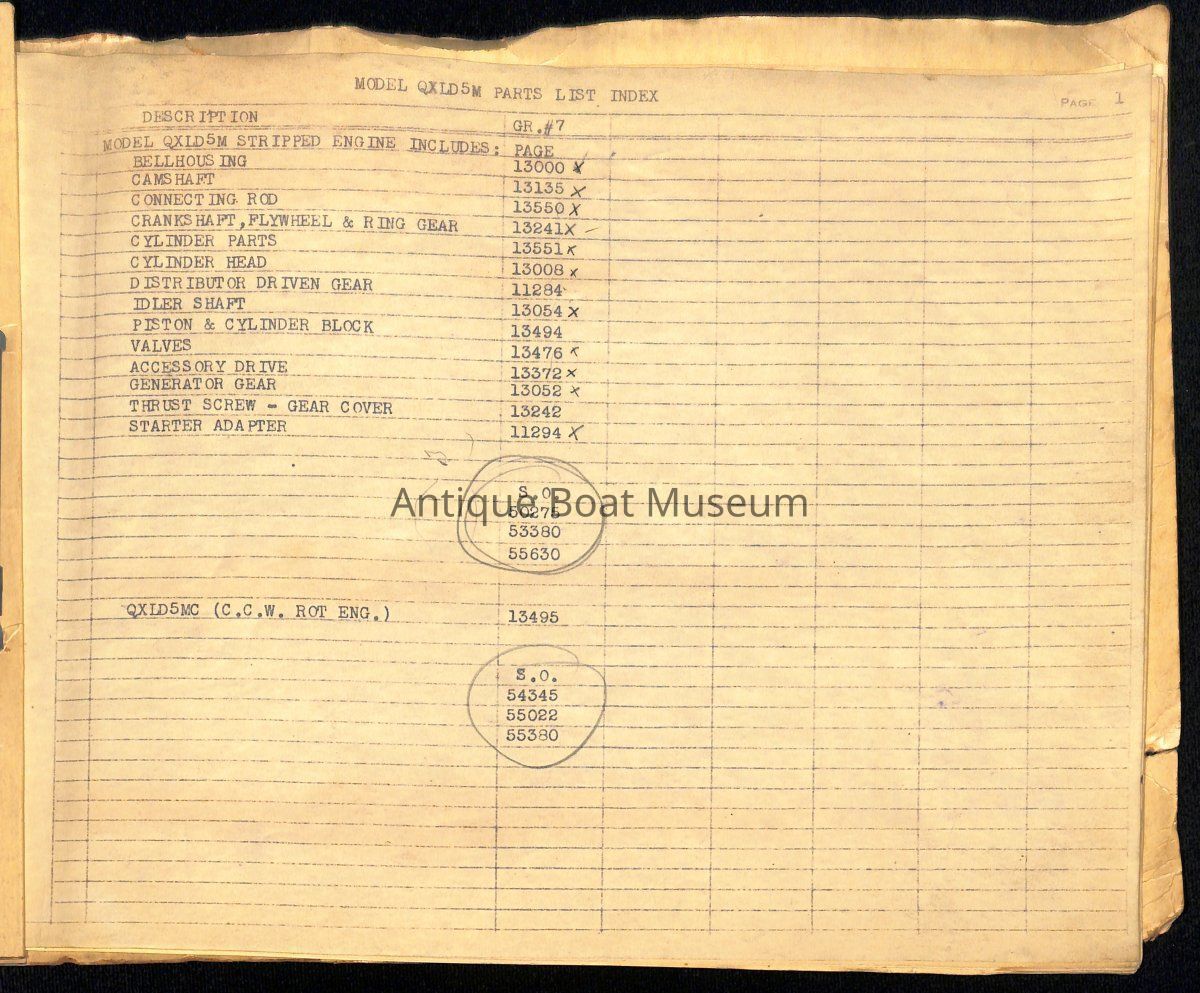 MODEL QXLD5M PARTS LIST INDEX
PAGE 1
DESCRIPTION GR.#7
MODEL QXLD5M STRIPPED ENGINE INCLUDES: PAGE
BELLHOUSING 13000 X
CAMSHAFT 13135 X
CONNECTING ROD 13550 X
CRANKSHAFT, FLYWHEEL & RING GEAR 13241 X
CYLINDER PARTS 13551 X
CYLINDER HEAD 13008 X
DISTRIBUTOR DRIVEN GEAR 11284
IDLER SHAFT 13054 X
PISTON & CYLINDER BLOCK 13494
VALVES 13476 X
ACCESSORY DRIVE 13372 X
GENERATOR GEAR 13052 X
THRUST SCREW - GEAR COVER 13242
STARTER ADAPTER 11294 X
S.O.
Antique Boat Museum
50275
53380
55630
QXLD5MC (C.C.W. ROT ENG.) 13495
S.O.
54345
55022
55380